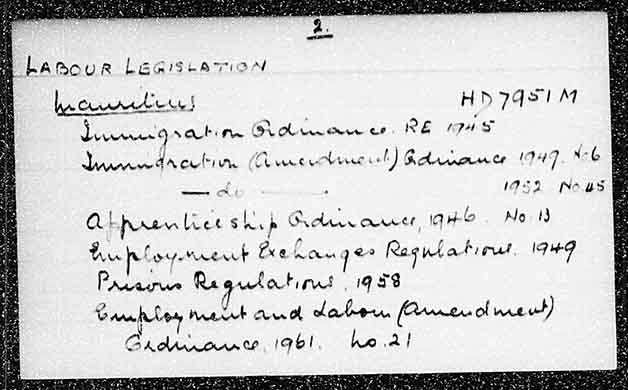 2.
LABOUR LEGISLATION
Mauritius HD7951M
Immigration Ordinance. RE 1945
Immigration (Amendment) Ordinance 1949. No 6
— do — 1952 No 45
Apprenticeship Ordinance, 1946. No. 13
Employment Exchanges Regulations. 1949
Prisons Regulations, 1958
Employment and Labour (Amendment)
Ordinance, 1961. No. 21